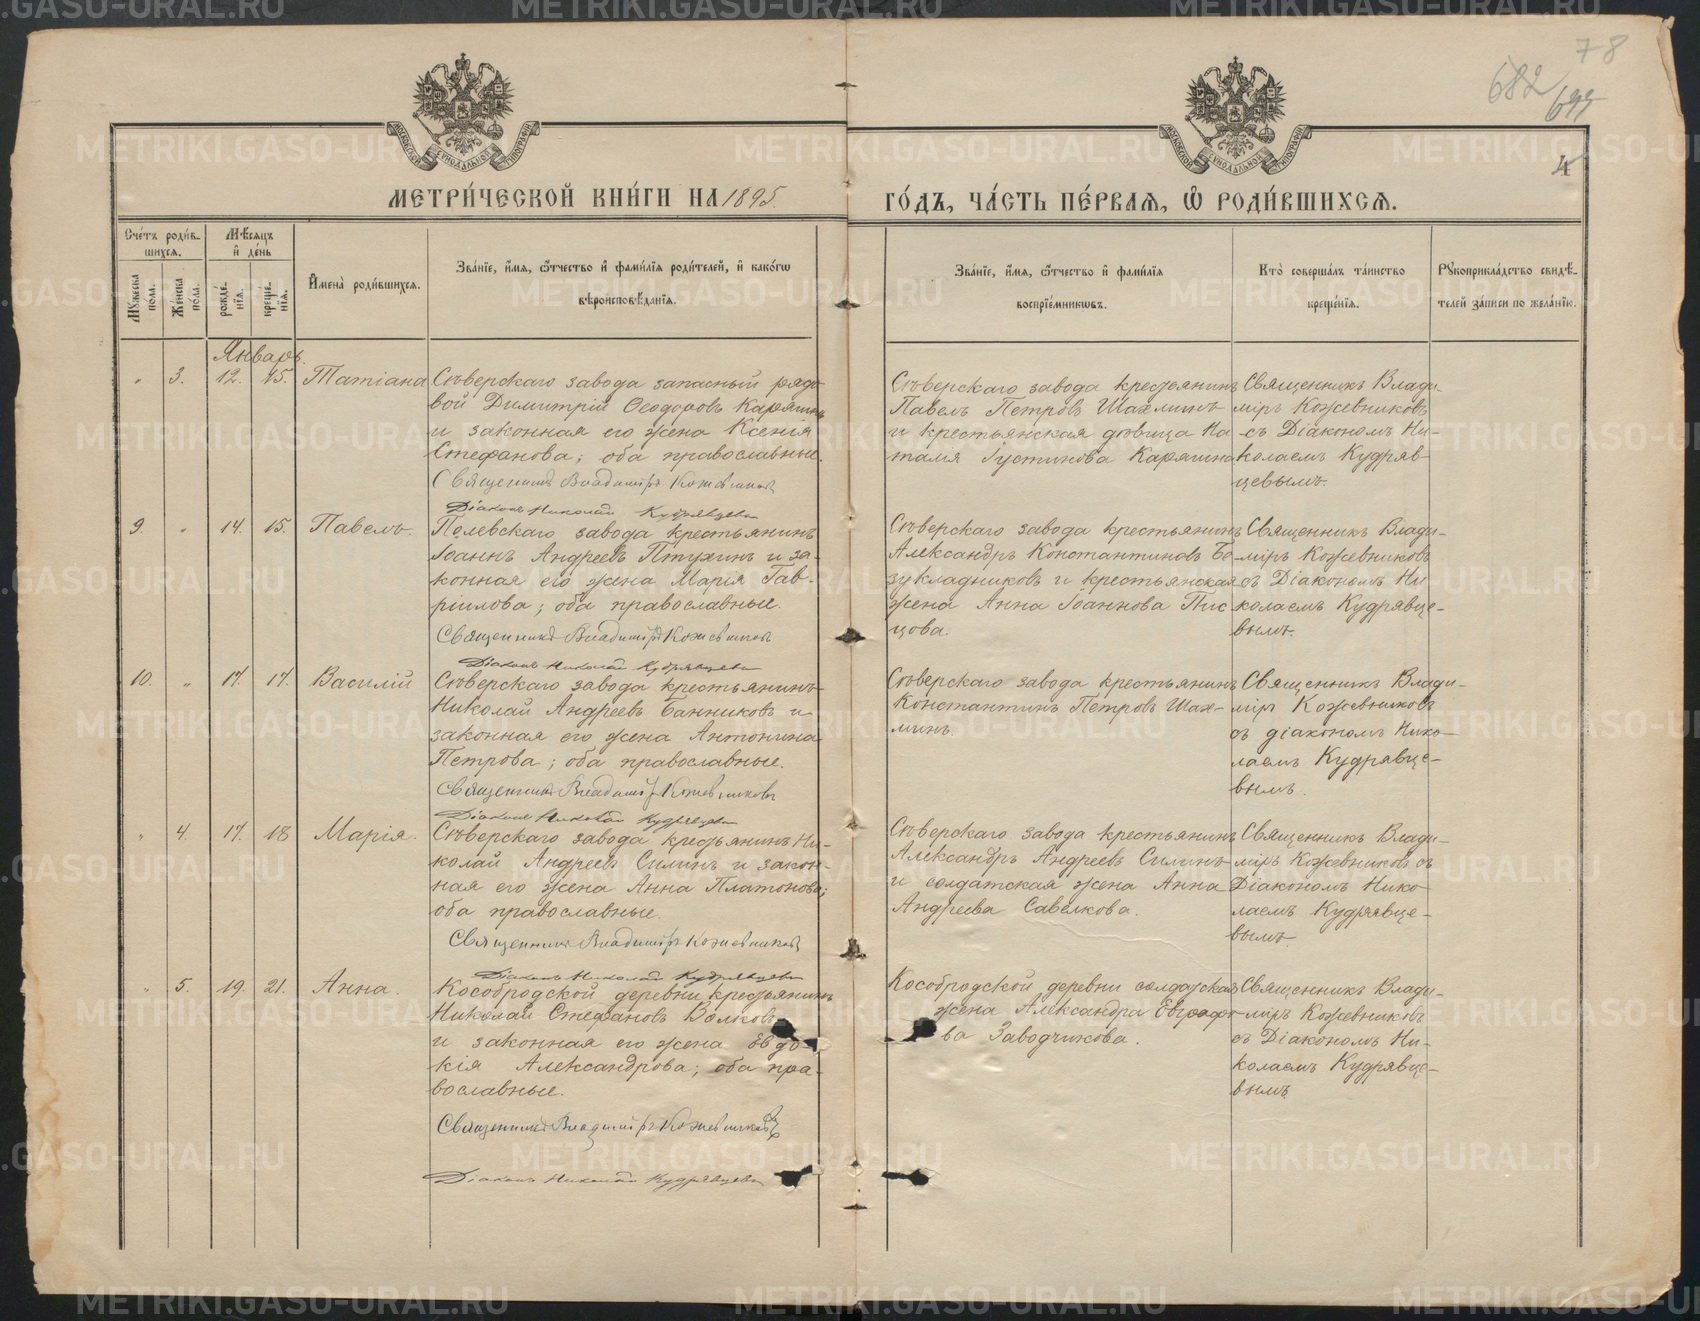 78
682
4
МОСКОВСКОЙ СѴНОДАЛЬНОЙ ТИПОГРАФІИ
МОСКОВСКОЙ СѴНОДАЛЬНОЙ ТИПОГРАФІИ
МЕТРИ́ЧЕСКОЙ КНИ́ГИ НА 1895.
ГО́ДЪ, ЧА́СТЬ ПЕ́РВАѦ, Ѡ҆ РОДИ́ВШИХСѦ.
Сче́тъ роди́в-
шихся.
Мѣ́сяцъ
и҆ де́нь
Му́жеска
по́ла.
Же́нска
по́ла.
рожде́-
нїя.
креще́-
нїя.
И҆мена̀ роди́вшихся.
Зва́нїе, и҆́мя, ѻ҆́тчество и҆ фами́лїя роди́телей, и҆ како́гѡ
вѣроисповѣ́данїя.
Зва́нїе, и҆́мя, ѻ҆́тчество и҆ фами́лїя
воспрїе́мниковъ.
Кто̀ соверша́лъ та́инство
креще́нїя.
Рꙋкоприкла́дство свидѣ́-
телей за́писи по жела́нїю.
Январь.
" 3. 12. 15. Татіана
Сѣверскаго завода запасный рядо-
вой Димитрій Ѳеодоровъ Карягинъ
и законная его жена Ксенія
Стефанова; оба православные.
Священникъ Владиміръ Кожевниковъ
Діаконъ Николай Кудрявцевъ
Сѣверскаго завода крестьянинъ
Павелъ Петровъ Шахминъ
и крестьянская дѣвица На
талія Іустинова Карягина
Священникъ Влади-
міръ Кожевниковъ
съ Діакономъ Ни-
колаемъ Кудряв-
цевымъ.
9. " 14. 15. Павелъ.
Полевскаго завода крестьянинъ
Іоаннъ Андреевъ Птухинъ и за-
конная его жена Марія Гав-
ріилова; оба православные.
Священникъ Владиміръ Кожевниковъ
Діаконъ Николай Кудрявцевъ
Сѣверскаго завода крестьянинъ
Александръ Константиновъ Бе
зукладниковъ и крестьянская
жена Анна Іоаннова Пис
цова.
Священникъ Влади-
міръ Кожевниковъ
съ Діакономъ Ни
колаемъ Кудрявце-
вымъ.
10. " 17. 17. Василій
Сѣверскаго завода крестьянинъ
Николай Андреевъ Банниковъ и
законная его жена Антонина
Петрова; оба православные.
Священникъ Владиміръ Кожевниковъ
Діаконъ Николай Кудрявцевъ
Сѣверскаго завода крестьянинъ
Константинъ Петровъ Шах-
минъ.
Священникъ Влади-
міръ Кожевниковъ
съ діакономъ Нико-
лаемъ Кудрявце-
вымъ.
" 4. 17. 18 Марія.
Сѣверскаго завода крестьянинъ Ни-
колай Андреевъ Силинъ и закон-
ная его жена Анна Платонова;
оба православные.
Священникъ Владиміръ Кожевниковъ
Діаконъ Николай Кудрявцевъ
Сѣверскаго завода крестьянинъ
Александръ Андреевъ Силинъ
и солдатская жена Анна
Андреева Савелкова.
Священникъ Влади-
міръ Кожевниковъ съ
Діакономъ Нико-
лаемъ Кудрявце-
вымъ
" 5. 19. 21. Анна.
Кособродской деревни крестьянинъ
Николай Стефановъ Волковъ
и законная его жена Евдо-
кія Александрова; оба пра-
вославные.
Священникъ Владиміръ Кожевниковъ
Діаконъ Николай Кудрявцевъ
Кособродской деревни солдатская
жена Александра Евграфо
ва Заводчикова.
Священникъ Влади-
міръ Кожевниковъ
съ Діакономъ Ни-
колаемъ Кудрявце-
вымъ
METRIKI.GASO-URAL.RU